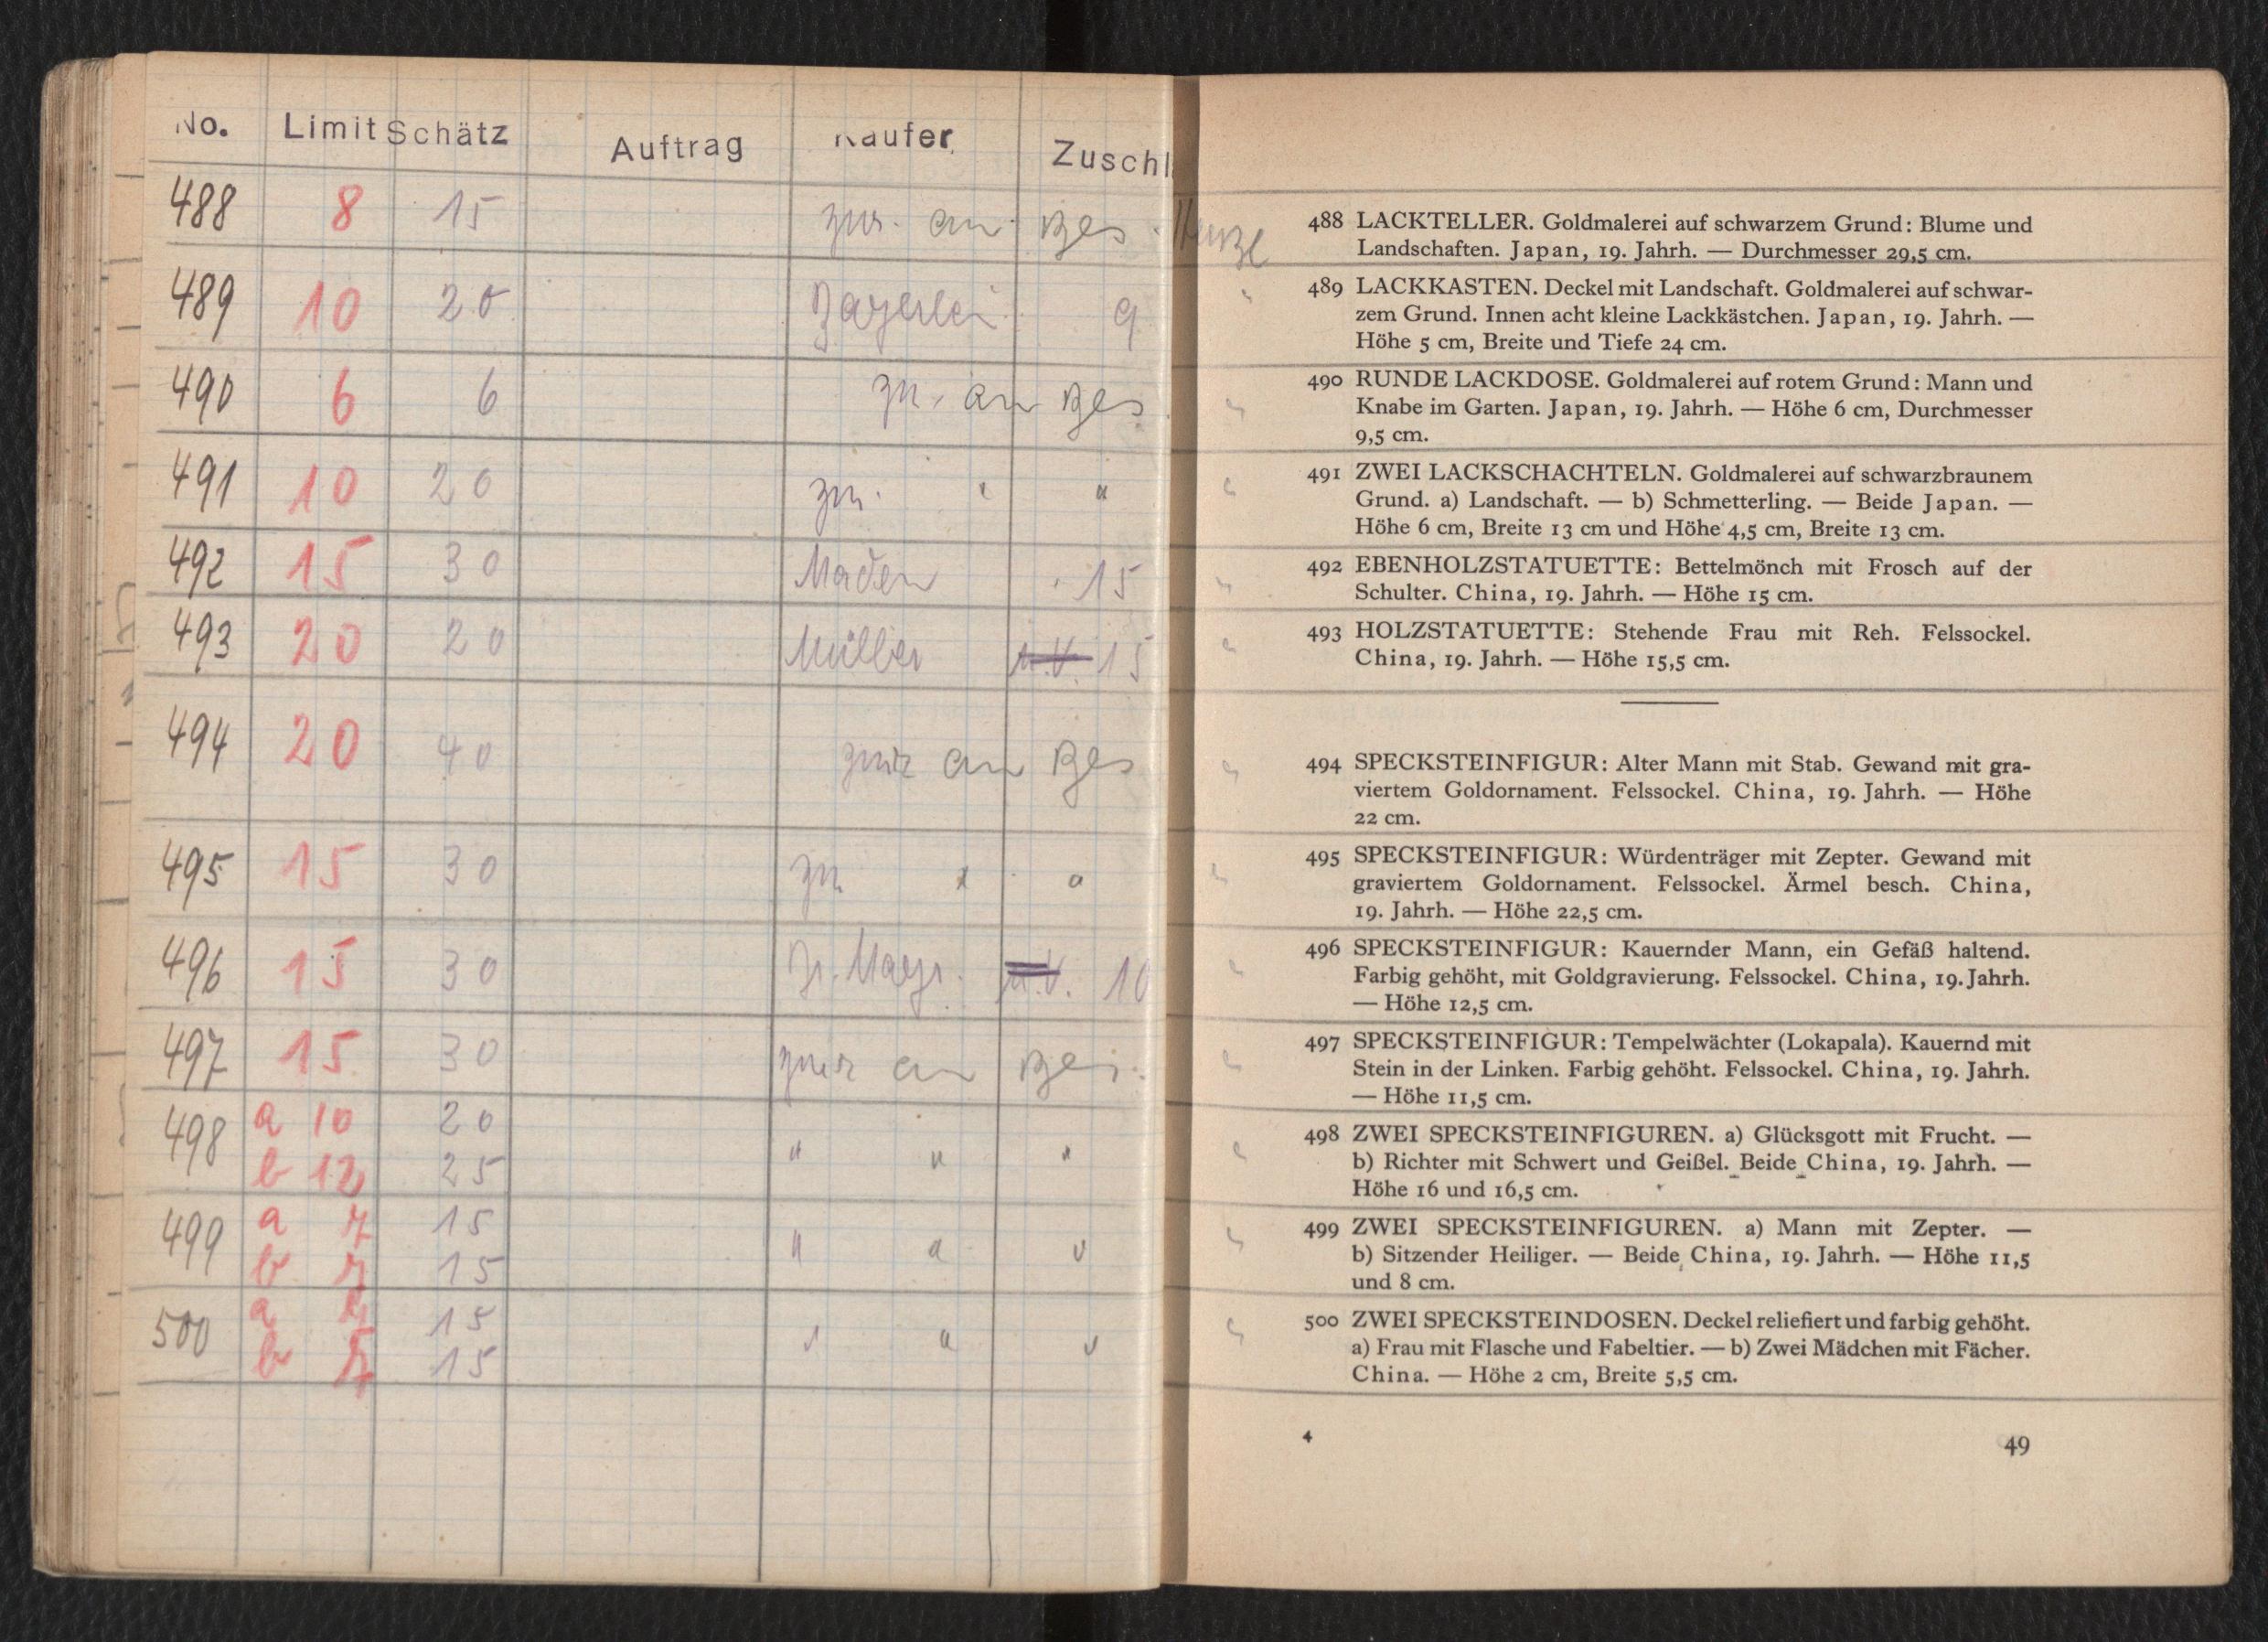 No. Limit Schätz Auftrag Käufer Zuschl
488 8 15 zur. an Bes.
489 10 20 9
490 6 6 zu. an Bes
491 10 20 zu. " "
492 15 30 Maden 15
493 20 20 Müller u.V. 15
494 20 40 zur an Bes
495 15 30 zu " "
496 15 30 Mayr. u.V. 10
497 15 30 zur an Bes.
498 a 10 20
b 12 25 " " "
499 a 7 15
b 7 15 " " "
500 a 15
b 15 " " "
488 LACKTELLER. Goldmalerei auf schwarzem Grund: Blume und
Landschaften. Japan, 19. Jahrh. — Durchmesser 29,5 cm.
489 LACKKASTEN. Deckel mit Landschaft. Goldmalerei auf schwar-
zem Grund. Innen acht kleine Lackkästchen. Japan, 19. Jahrh. —
Höhe 5 cm, Breite und Tiefe 24 cm.
490 RUNDE LACKDOSE. Goldmalerei auf rotem Grund: Mann und
Knabe im Garten. Japan, 19. Jahrh. — Höhe 6 cm, Durchmesser
9,5 cm.
491 ZWEI LACKSCHACHTELN. Goldmalerei auf schwarzbraunem
Grund. a) Landschaft. — b) Schmetterling. — Beide Japan. —
Höhe 6 cm, Breite 13 cm und Höhe 4,5 cm, Breite 13 cm.
492 EBENHOLZSTATUETTE: Bettelmönch mit Frosch auf der
Schulter. China, 19. Jahrh. — Höhe 15 cm.
493 HOLZSTATUETTE: Stehende Frau mit Reh. Felssockel.
China, 19. Jahrh. — Höhe 15,5 cm.
494 SPECKSTEINFIGUR: Alter Mann mit Stab. Gewand mit gra-
viertem Goldornament. Felssockel. China, 19. Jahrh. — Höhe
22 cm.
495 SPECKSTEINFIGUR: Würdenträger mit Zepter. Gewand mit
graviertem Goldornament. Felssockel. Ärmel besch. China,
19. Jahrh. — Höhe 22,5 cm.
496 SPECKSTEINFIGUR: Kauernder Mann, ein Gefäß haltend.
Farbig gehöht, mit Goldgravierung. Felssockel. China, 19. Jahrh.
— Höhe 12,5 cm.
497 SPECKSTEINFIGUR: Tempelwächter (Lokapala). Kauernd mit
Stein in der Linken. Farbig gehöht. Felssockel. China, 19. Jahrh.
— Höhe 11,5 cm.
498 ZWEI SPECKSTEINFIGUREN. a) Glücksgott mit Frucht. —
b) Richter mit Schwert und Geißel. Beide China, 19. Jahrh. —
Höhe 16 und 16,5 cm.
499 ZWEI SPECKSTEINFIGUREN. a) Mann mit Zepter. —
b) Sitzender Heiliger. — Beide China, 19. Jahrh. — Höhe 11,5
und 8 cm.
500 ZWEI SPECKSTEINDOSEN. Deckel reliefiert und farbig gehöht.
a) Frau mit Flasche und Fabeltier. — b) Zwei Mädchen mit Fächer.
China. — Höhe 2 cm, Breite 5,5 cm.
4
49